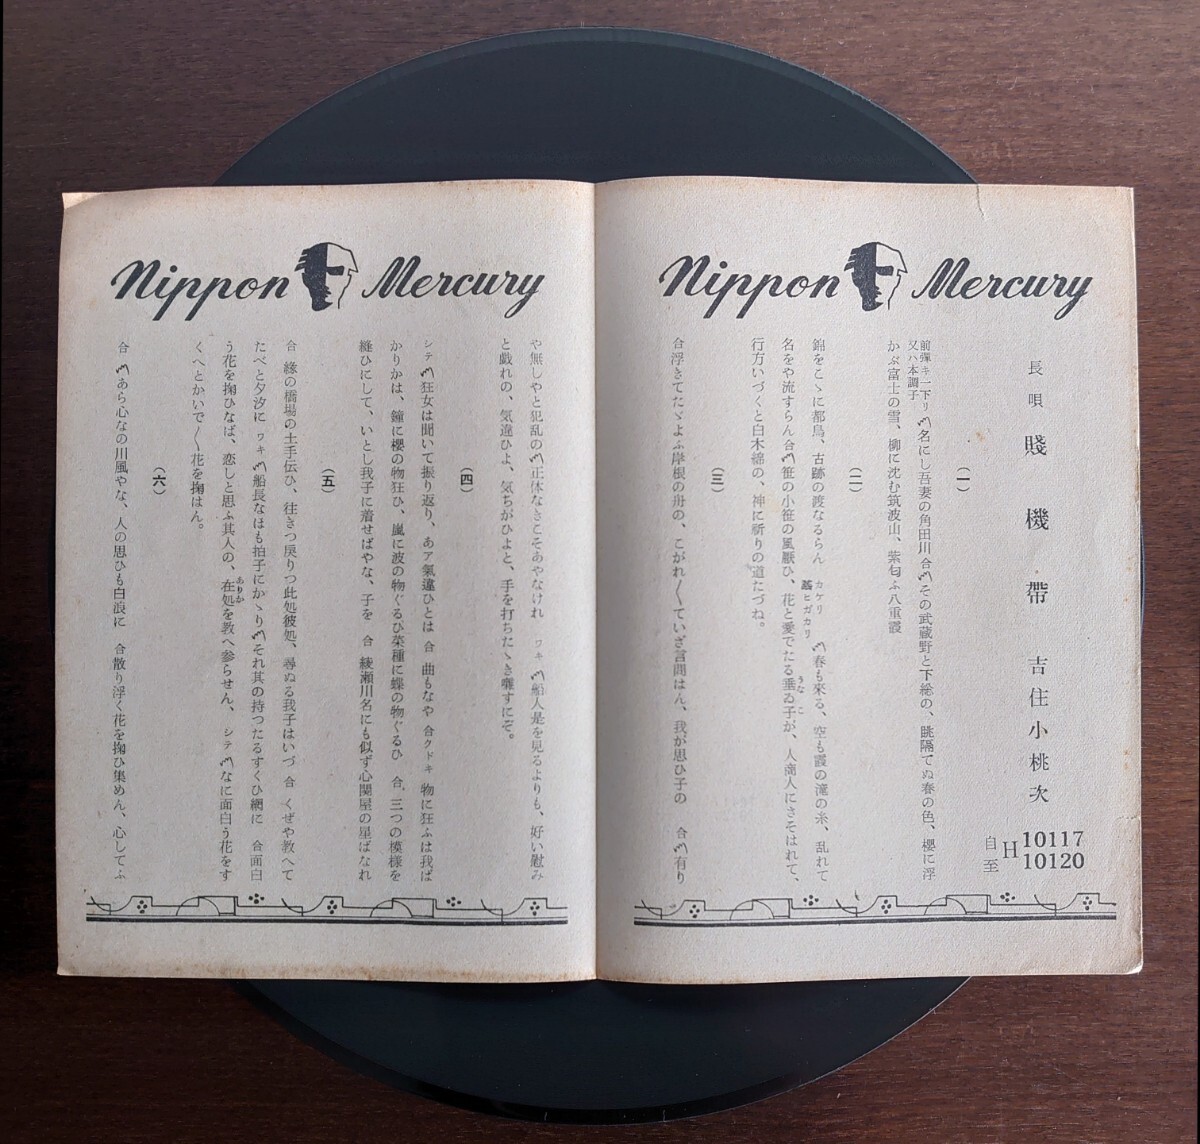 Nippon Mercury
長唄 賤機帶 吉住小桃次
自至 H 10117 10120
(一)
前彈キ一下リ又ハ本調子 〽名にし吾妻の角田川 合〽その武蔵野と下総の、眺隔てぬ春の色、櫻に浮
かぶ富士の雪、柳に沈む筑波山、紫匂ふ八重霞
(二)
錦をこゝに都鳥、古跡の渡なるらん カケリ ヒガカリ 〽春も來る、空も霞の滝の糸、乱れて
名をや流すらん合〽笹の小笹の風厭ひ、花と愛でたる垂ゐ子が、人商人にさそはれて、
うなこ
行方いづくと白木綿の、神に祈りの道たづね。
(三)
合浮きてたゞよふ岸根の舟の、こがれ〳〵ていざ言問はん、我が思ひ子の 合〽有り
Nippon Mercury
や無しやと犯乱の〽正体なきこそあやなけれ ワキ〽船人是を見るよりも、好い慰み
と戯れの、気違ひよ、気ちがひよと、手を打ちたゝき囃すにぞ。
(四)
シテ〽狂女は聞いて振り返り、あア氣違ひとは 合 曲もなや 合クドキ 物に狂ふは我ば
かりかは、鐘に櫻の物狂ひ、嵐に波の物ぐるひ菜種に蝶の物ぐるひ 合 三つの模様を
縫ひにして、いとし我子に着せばやな、子を 合 綾瀬川名にも似ず心関屋の星ばなれ
(五)
合 緣の橋場の土手伝ひ、往きつ戻りつ此処彼処、尋ぬる我子はいづ 合 くぞや教へて
たべと夕汐に ワキ〽船長なほも拍子にかゝり〽それ其の持つたるすくひ網に 合面白
う花を掬ひなば、恋しと思ふ其人の、在処を教へ参らせん、 シテ〽なに面白う花をす
ありか
くへとかいで〳〵花を掬はん。
(六)
合 〽あら心なの川風やな、人の思ひも白浪に 合散り浮く花を掬ひ集めん、心してふ